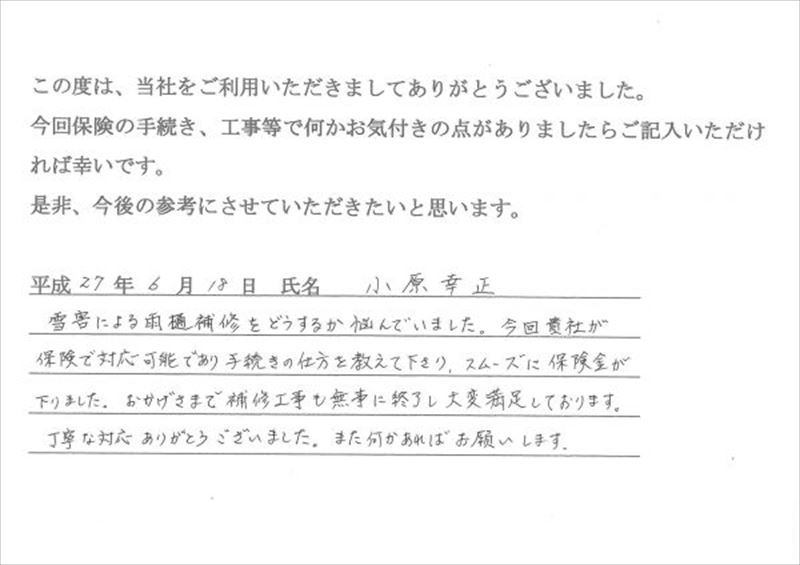 この度は、当社をご利用いただきましてありがとうございました。
今回保険の手続き、工事等で何かお気付きの点がありましたらご記入いただけ
れば幸いです。
是非、今後の参考にさせていただきたいと思います。
平成 27 年 6 月 18 日 氏名 小原幸正
雪害による雨樋補修をどうするか悩んでいました。今回貴社が
保険で対応可能であり手続きの仕方を教えて下さり、スムーズに保険金が
下りました。おかげさまで補修工事も無事に終了し大変満足しております。
丁寧な対応ありがとうございました。また何かあればお願いします.